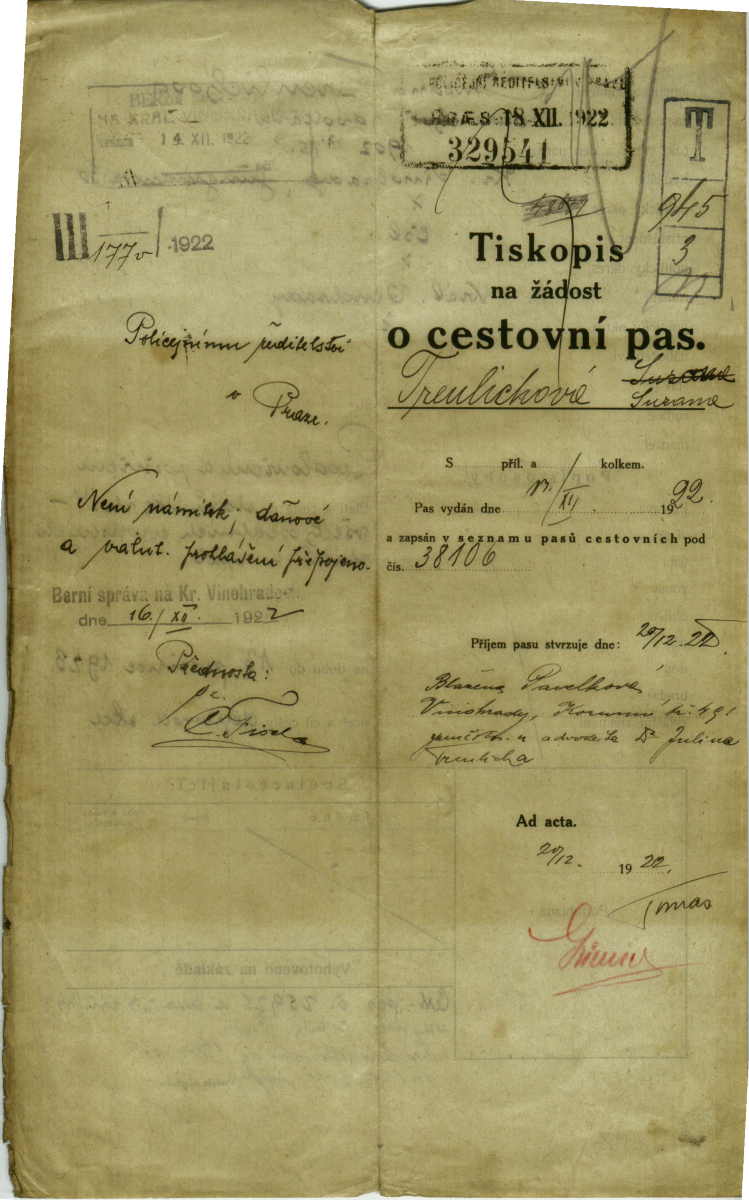 POLICEJNÍ ŘEDITELSTVÍ V PRAZE
PRAES. 18 XII. 1922
329541
T
945
3
14 XII. 1922
III 177 1922
Tiskopis
na žádost
o cestovní pas.
Treulichová Suzana
Suzana
S příl. a / kolkem.
Pas vydán dne XII. 1922.
a zapsán v seznamu pasů cestovních pod
čís. 38106
Příjem pasu stvrzuje dne: 20/12. 22
Blažena Pavelková
Vinohrady, Korunní tř.
u advokáta Dr Julia
Treulicha
Ad acta.
20/12. 1922.
Tomas
Policejnímu ředitelství
v Praze.
Není námitek; daňové
a valut. prohlášení připojeno.
Berní správa na Kr. Vinohradech
dne 16./XII. 1922
Přednosta: